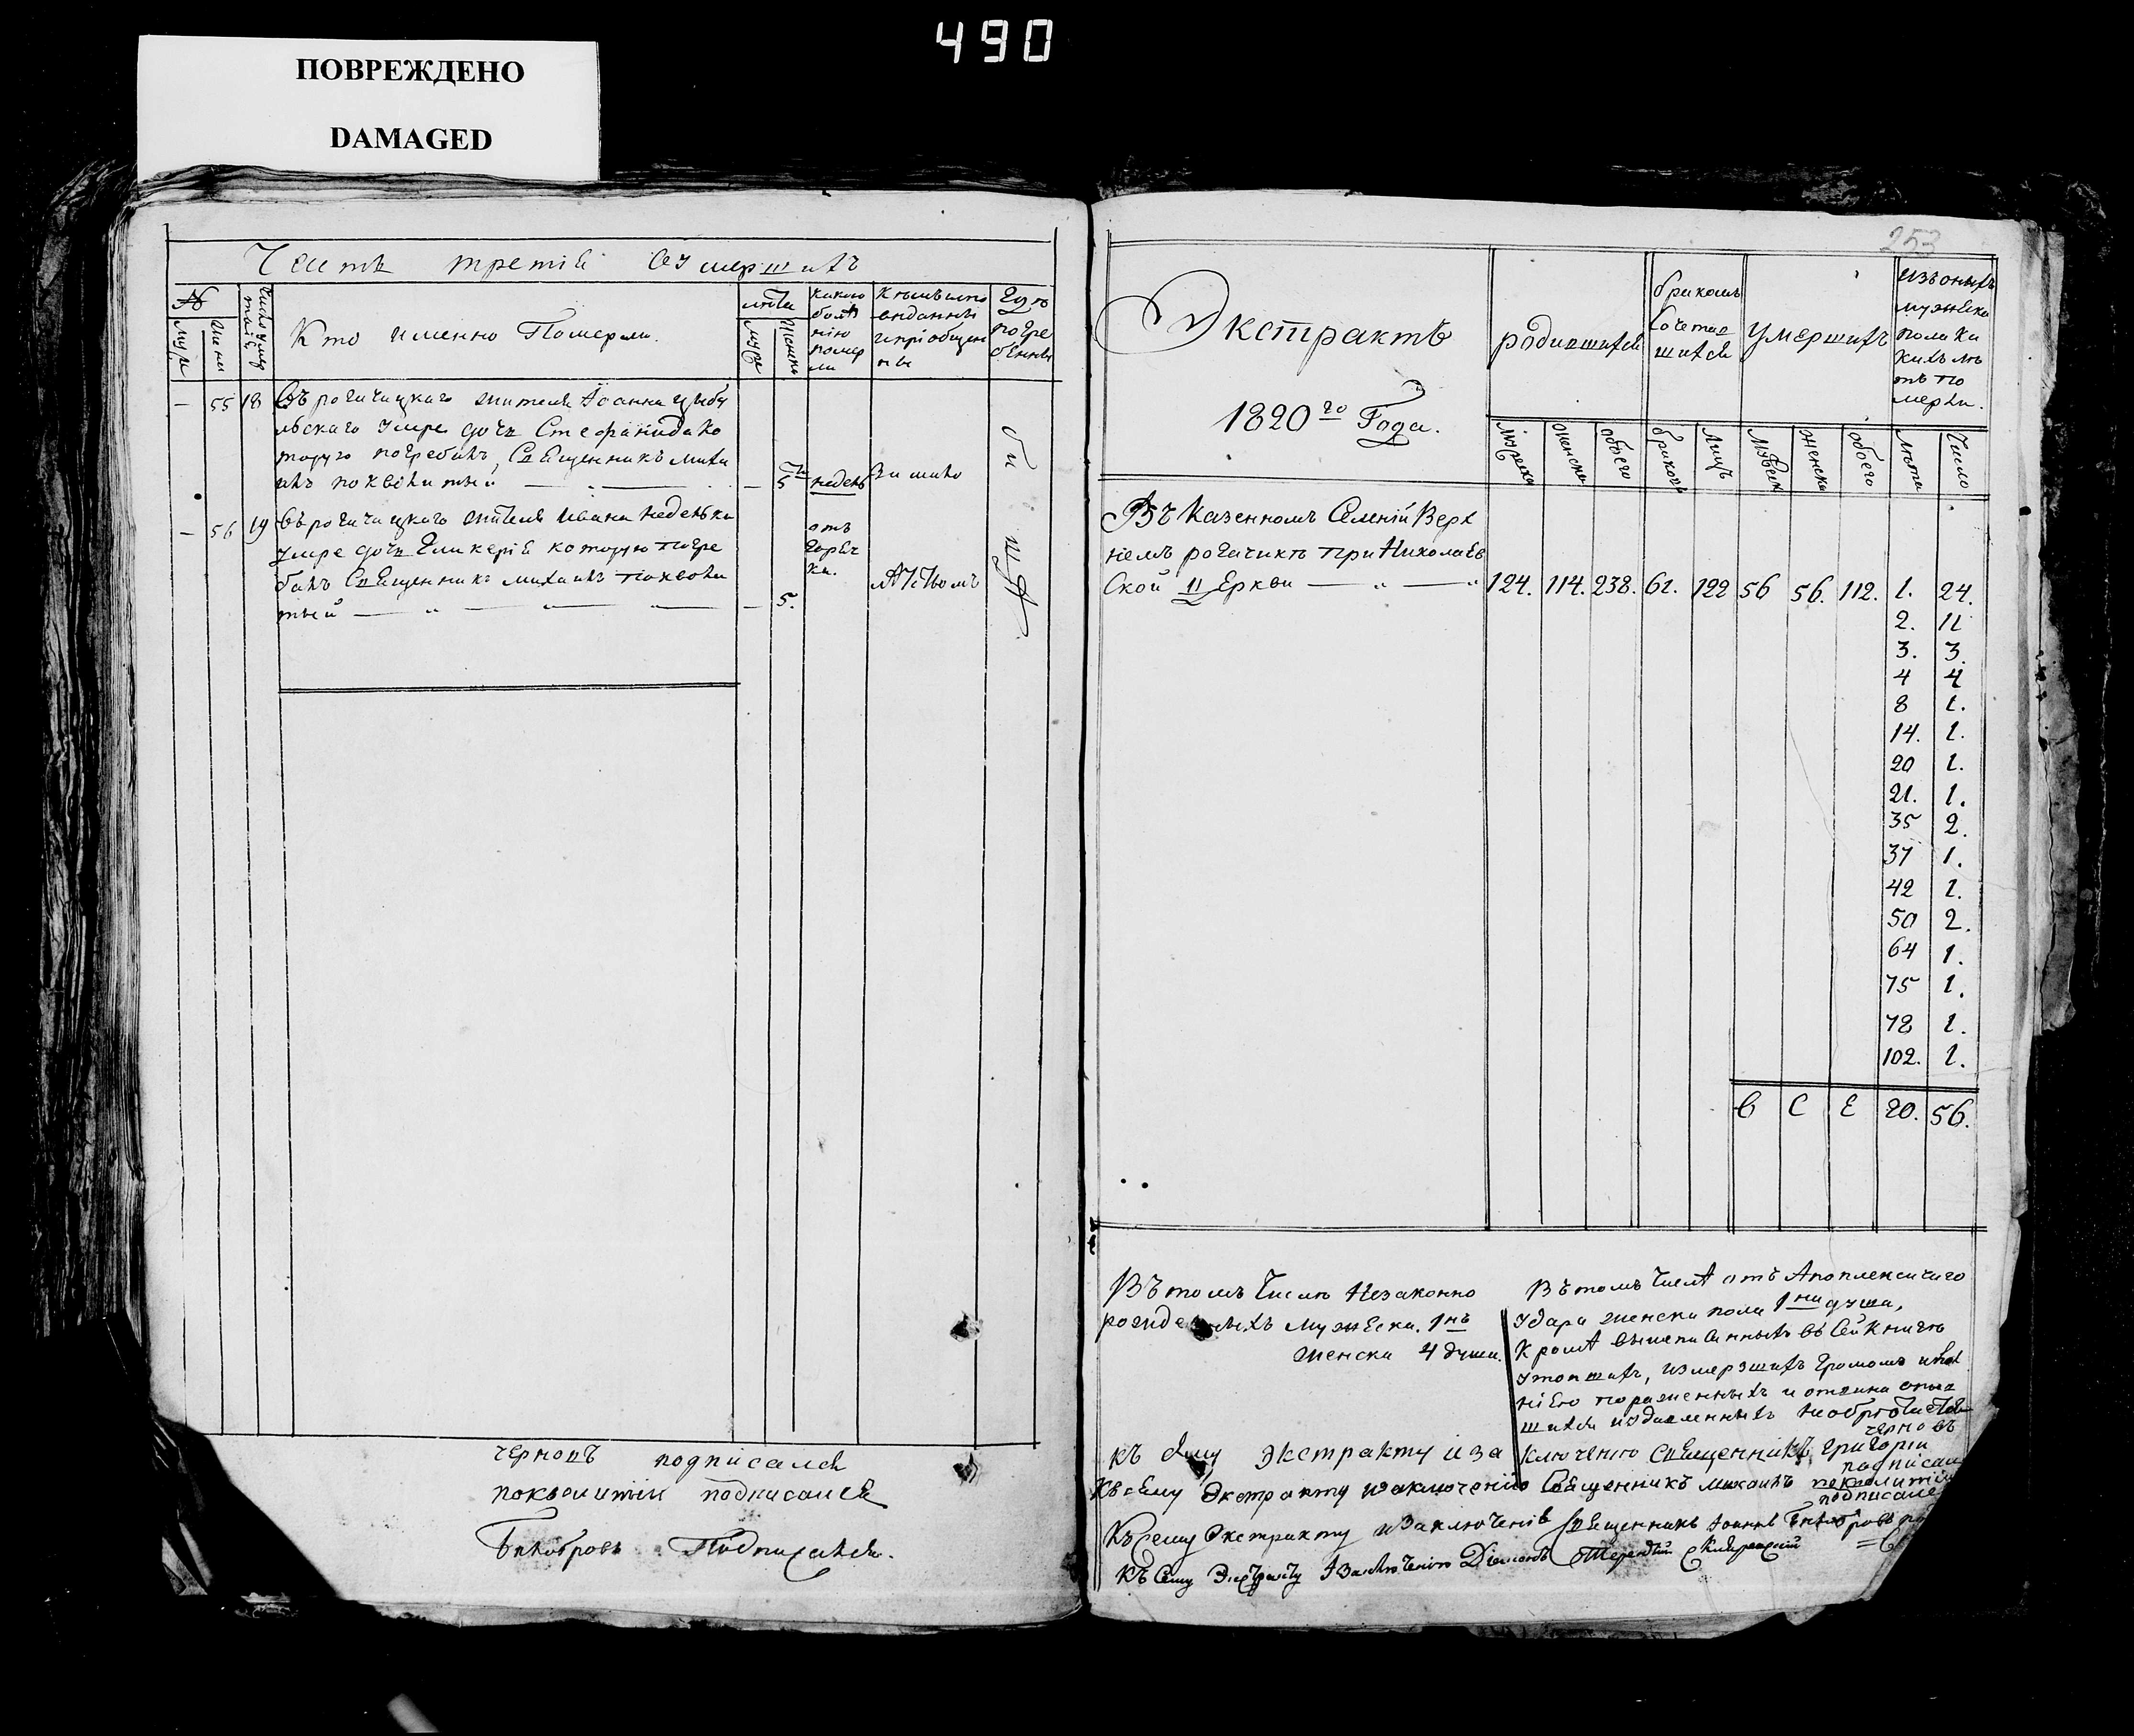 490
ПОВРЕЖДЕНО
DAMAGED
Часть третія оѹмершихъ
№
муж
жен
Кто именно Померли.
лѣта
муж
женска
какою
болѣ
нію
помер
ли
Кѣмъ испо
виданны
и пріобщен
ны
Гдѣ
погре
бенны
— 55 18 Въ рогачицкаго жителя Іоанна цыбу
льскаго умре дочь Стефанида ко
торую погребалъ Священникъ миха
илъ поквитный — " — — 5 недель
— 56 19 Въ рогачицкаго жителя Ивана неделька
умре дочь Гликерія которую погре
балъ Священникъ михаилъ покволи
тный — " — " — — 5.
отъ
горяч
ки.
черновъ подписался
подписался
Бѣлобровъ Подписался.
253
Экстрактъ
1820го Года.
родившихся
бракомъ
сочетав
шихся
умершихъ
изъ оныхъ
мужеска
пола ка
кихъ лѣ
тъ по
мерли.
мужеска
женска
обоего
браковъ
лицъ
Мужеск
женска
обоего
лѣта
Число
Въ Казенномъ Селеніи Верх
немъ рогачикѣ при Николаев
ской Церкви — " — " 124. 114. 238. 61. 122 56 56. 112. 1. 24.
2. 11
3. 3.
4 4
8 1.
14. 1.
20 1.
21. 1.
35 2.
37 1.
42 1.
50 2.
64 1.
75 1.
78 1.
102. 1.
В С Е ГО. 56.
Въ томъ Числѣ Незаконно
рожденныхъ мужеска. 1нъ
женска 4 души.
Въ томъ Числѣ отъ Апоплексичнаго
удара женска пола 1на душа,
Кромѣ вышеписанныхъ въ сей книгѣ
утопшихъ, измерзшихъ громомъ и мол
ніею пораженныхъ и отвина опив
шихся издавленныхъ необрѣтается
къ сему Экстракту и заключенію Священникъ григорій черновъ
подписался
Къ сему Экстракту и заключенію Священникъ михаилъ
подписался
Къ сему Экстракту и Заключенію Священникъ Іоаннъ Бѣлобровъ
Къ Сему Экстракту и Заключенію